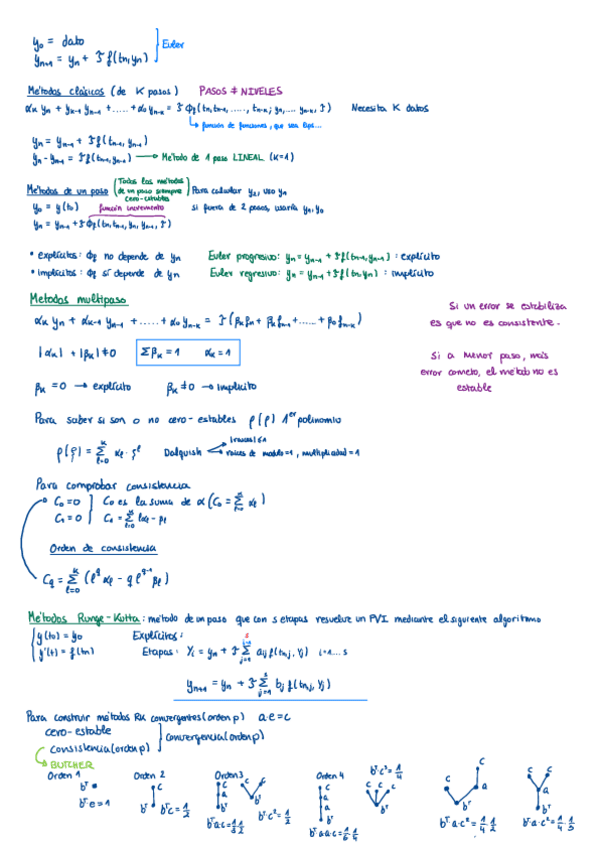 y₀ = dato
yₙ₊₁ = yₙ + ℑ f(tₙ,yₙ) } Euler
Métodos clásicos (de K pasos) PASOS ≠ NIVELES
αₖ yₙ + αₖ₋₁ yₙ₋₁ + ..... + α₀ yₙ₋ₖ = ℑ Φf(tₙ, tₙ₋₁, ....., tₙ₋ₖ; yₙ, .... yₙ₋ₖ, ℑ) Necesita K datos
↳ función de funciones, que sea lips...
yₙ = yₙ₋₁ + ℑ f(tₙ₋₁, yₙ₋₁)
yₙ - yₙ₋₁ = ℑ f(tₙ₋₁, yₙ₋₁) → Método de 1 paso LINEAL (K=1)
Métodos de un paso (Todos los métodos de un paso siempre cero-estables) Para calcular y₁, uso y₀
y₀ = y(t₀) función incremento si fuera de 2 pasos, usaría y₁, y₀
yₙ = yₙ₋₁ + ℑ Φf(tₙ, tₙ₋₁, yₙ, yₙ₋₁, ℑ)
• explícitos: Φf no depende de yₙ Euler progresivo: yₙ = yₙ₋₁ + ℑ f(tₙ₋₁, yₙ₋₁) : explícito
• implícitos: Φf sí depende de yₙ Euler regresivo: yₙ = yₙ₋₁ + ℑ f(tₙ, yₙ) : implícito
Metodos multipaso
αₖ yₙ + αₖ₋₁ yₙ₋₁ + ..... + α₀ yₙ₋ₖ = ℑ (βₖ fₙ + βₖ fₙ₋₁ + ..... + β₀ fₙ₋ₖ)
Si un error se estabiliza
es que no es consistente.
|αₖ| + |βₖ| ≠ 0 Σβₖ = 1 αₖ = 1
Si a menor paso, más
error cometo, el método no es
estable
βₖ = 0 → explícito βₖ ≠ 0 → Implícito
Para saber si son o no cero-estables ρ(ρ) 1ᵉʳ polinomio
ρ(ζ) = Σ αℓ · ζˡ Dalquish
|raices| ≤ 1
raices de modulo = 1, multiplicidad = 1
Para comprobar consistencia
C₀ = 0 C₀ es la suma de α (C₀ = Σ αℓ)
C₁ = 0 C₁ = Σ ℓαℓ - βℓ
Orden de consistencia
C_q = Σ (ℓ^q αℓ - q ℓ^(q-1) βℓ)
Métodos Runge-Kutta : método de un paso que con s etapas resuelve un PVI mediante el siguiente algoritmo
{ y(t₀) = y₀ Explícitos:
y'(t) = f(tₙ) Etapas: Yᵢ = yₙ + ℑ Σ aᵢⱼ f(tₙ,ⱼ, Yⱼ) i=1...s
yₙ₊₁ = yₙ + ℑ Σ bⱼ f(tₙ,ⱼ, Yⱼ)
Para construir métodos RK convergentes (orden p) a·e=c
cero-estable
consistencia (orden p) } convergencia (orden p)
↳ BUTCHER
Orden 1 Orden 2 Orden 3 Orden 4
bᵀ·e = 1
bᵀc = 1/2
bᵀa·c = 1/3 1/2
bᵀ·c² = 1/2
bᵀa·a·c = 1/6 1/4
bᵀ·c³ = 1/4
bᵀ a·c² = 1/4 1/2
bᵀ a·c² = 1/4 · 1/3